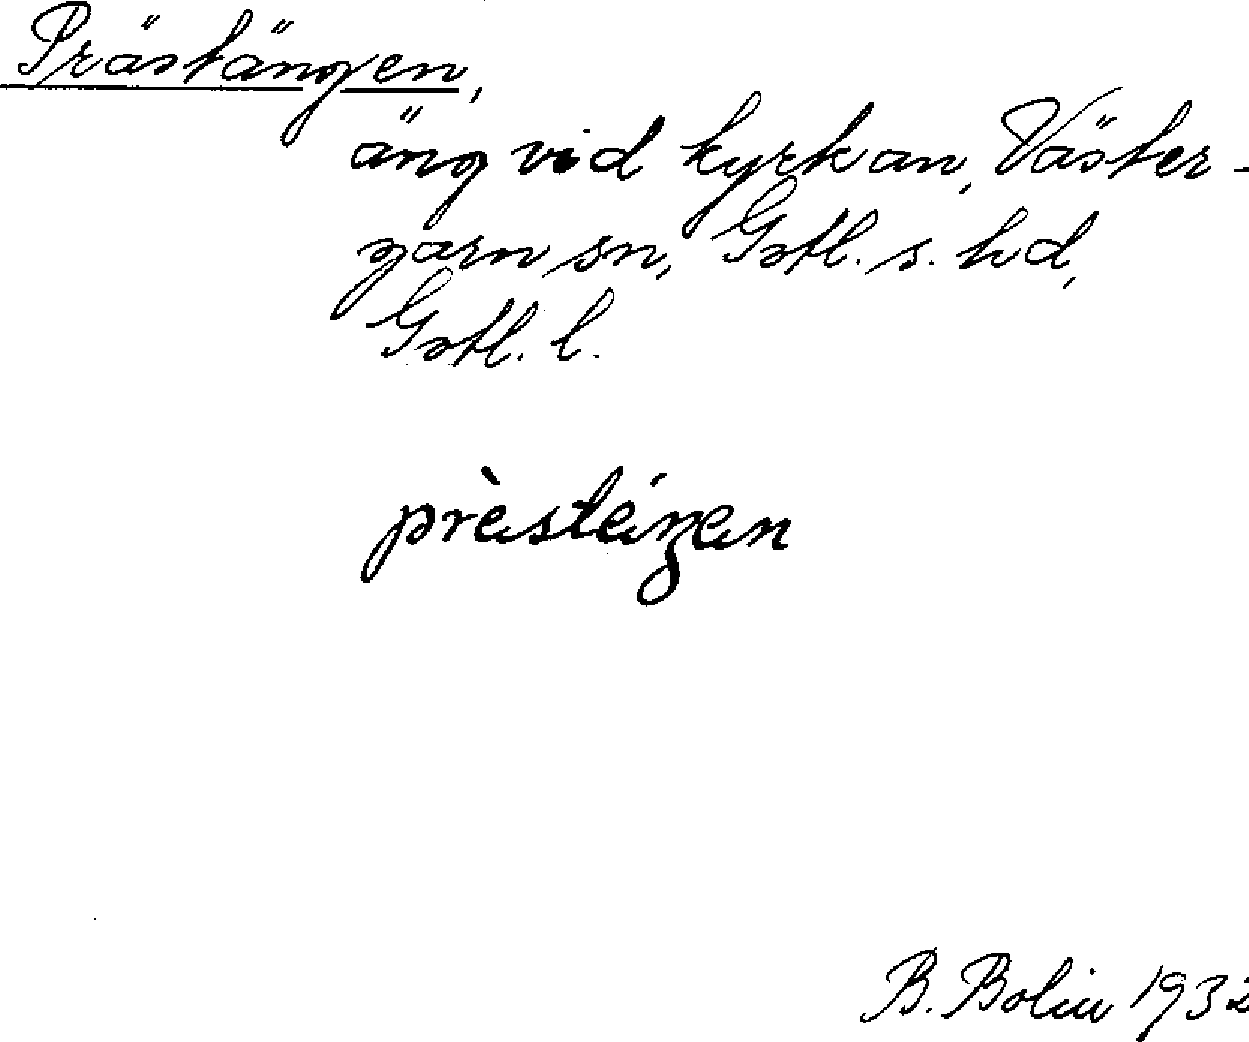 Prästängen,
äng vid kyrkan, Väster-
garn sn, Gotl. s. hd,
Gotl. l.
prèstéŋen
B. Bolin 1932